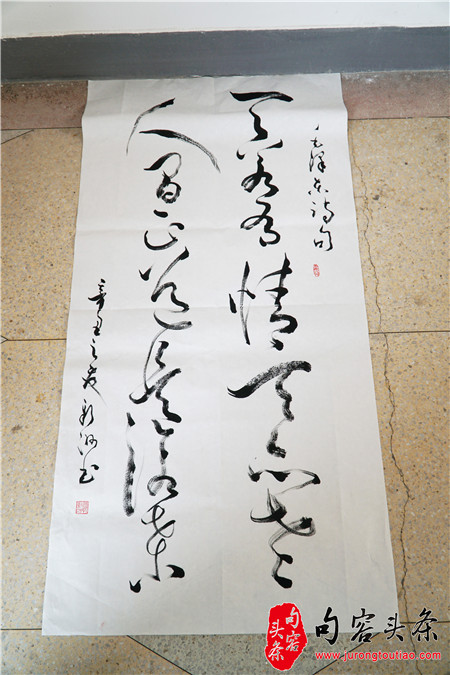 毛泽东诗句
天若有情天亦老
人间正道是沧桑
辛丑之
书
句容
头条
句容头条
www.jurongtoutiao.com